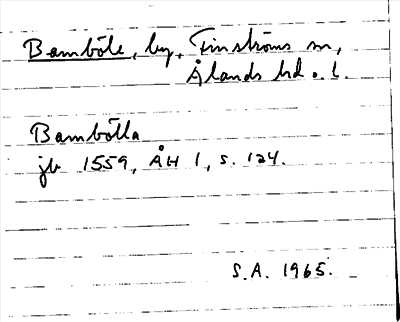 Bamböle, by, Finströms sn,
Ålands hd o. l.
Bambölla
jb 1559, ÅH 1, s. 124.
S.A. 1965.